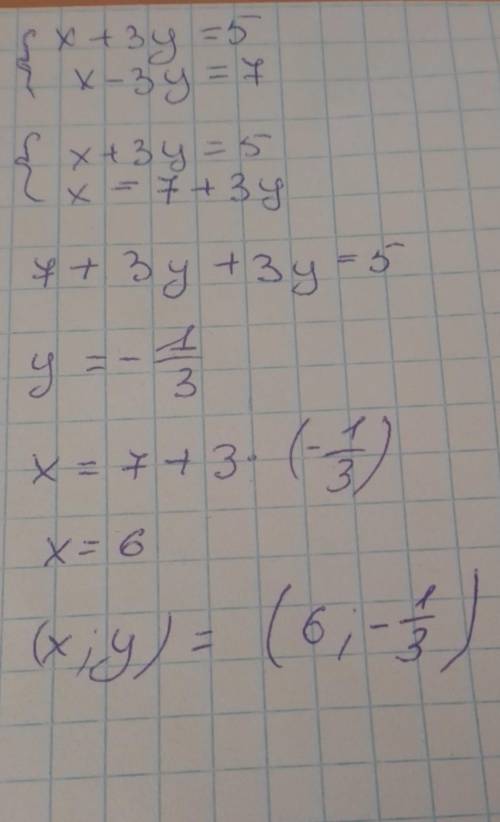 { x + 3y = 5
x - 3y = 7
{ x + 3y = 5
x = 7 + 3y
7 + 3y + 3y = 5
y = - 1/3
x = 7 + 3 · (- 1/3)
x = 6
(x; y) = (6; - 1/3)